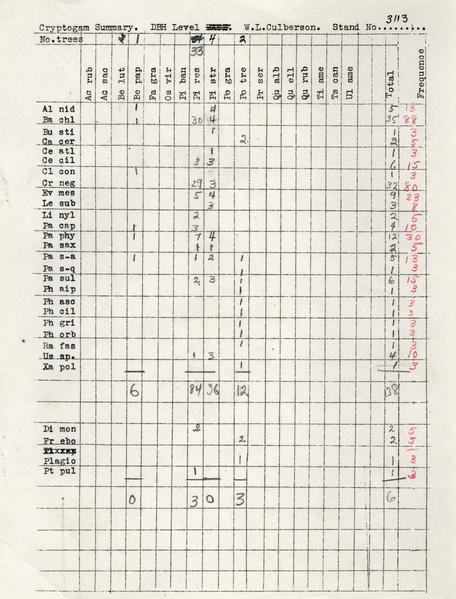 3113
Cryptogam Summary. DBH Level W.L.Culberson. Stand No.........
No.trees 1 4 2
33
Ac rub Ac sac Be lut Be pap Fa gra Os vir Pi ban Pi res Pi str Po gra Po tre Pr ser Qu alb Qu ell Qu rub Ti ame Ts can Ul ame Total Frequence
Al nid 1 4 5 13
Ba chl 1 30 4 35 88
Bu sti 1 1 3
Ca cer 2 2 5
Ce atl 1 1 3
Ce cil 3 3 6 15
Cl con 1 1 3
Cr neg 29 3 32 80
Ev mes 5 4 9 23
Le sub 3 3 8
Li nyl 2 2 5
Pa cap 1 3 4 10
Pa phy 1 7 4 12 30
Pa sax 1 1 2 5
Pa s-a 1 1 2 1 5 13
Pa s-q 1 1 3
Pa sul 2 3 1 6 15
Ph aip 1 1 3
Ph asc 1 1 3
Ph cil 1 1 3
Ph gri 1 1 3
Ph orb 1 1 3
Ra fas 1 1 3
Us sp. 1 3 4 10
Xa pol 1 1 3
6 84 36 12 138
Di mon 2 2 5
Fr ebo 2 2 5
Plagio 1 1 3
Pt pul 1 1 3
0 3 0 3 6